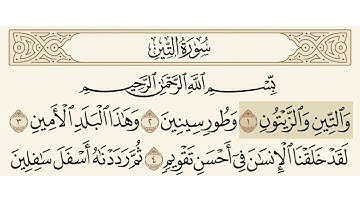 سُورَةُ التِّينِ
بِسْمِ اللَّهِ الرَّحْمَٰنِ الرَّحِيمِ
وَالتِّينِ وَالزَّيْتُونِ ١ وَطُورِ سِينِينَ ٢ وَهَٰذَا الْبَلَدِ الْأَمِينِ ٣
لَقَدْ خَلَقْنَا الْإِنسَانَ فِي أَحْسَنِ تَقْوِيمٍ ٤ ثُمَّ رَدَدْنَاهُ أَسْفَلَ سَافِلِينَ